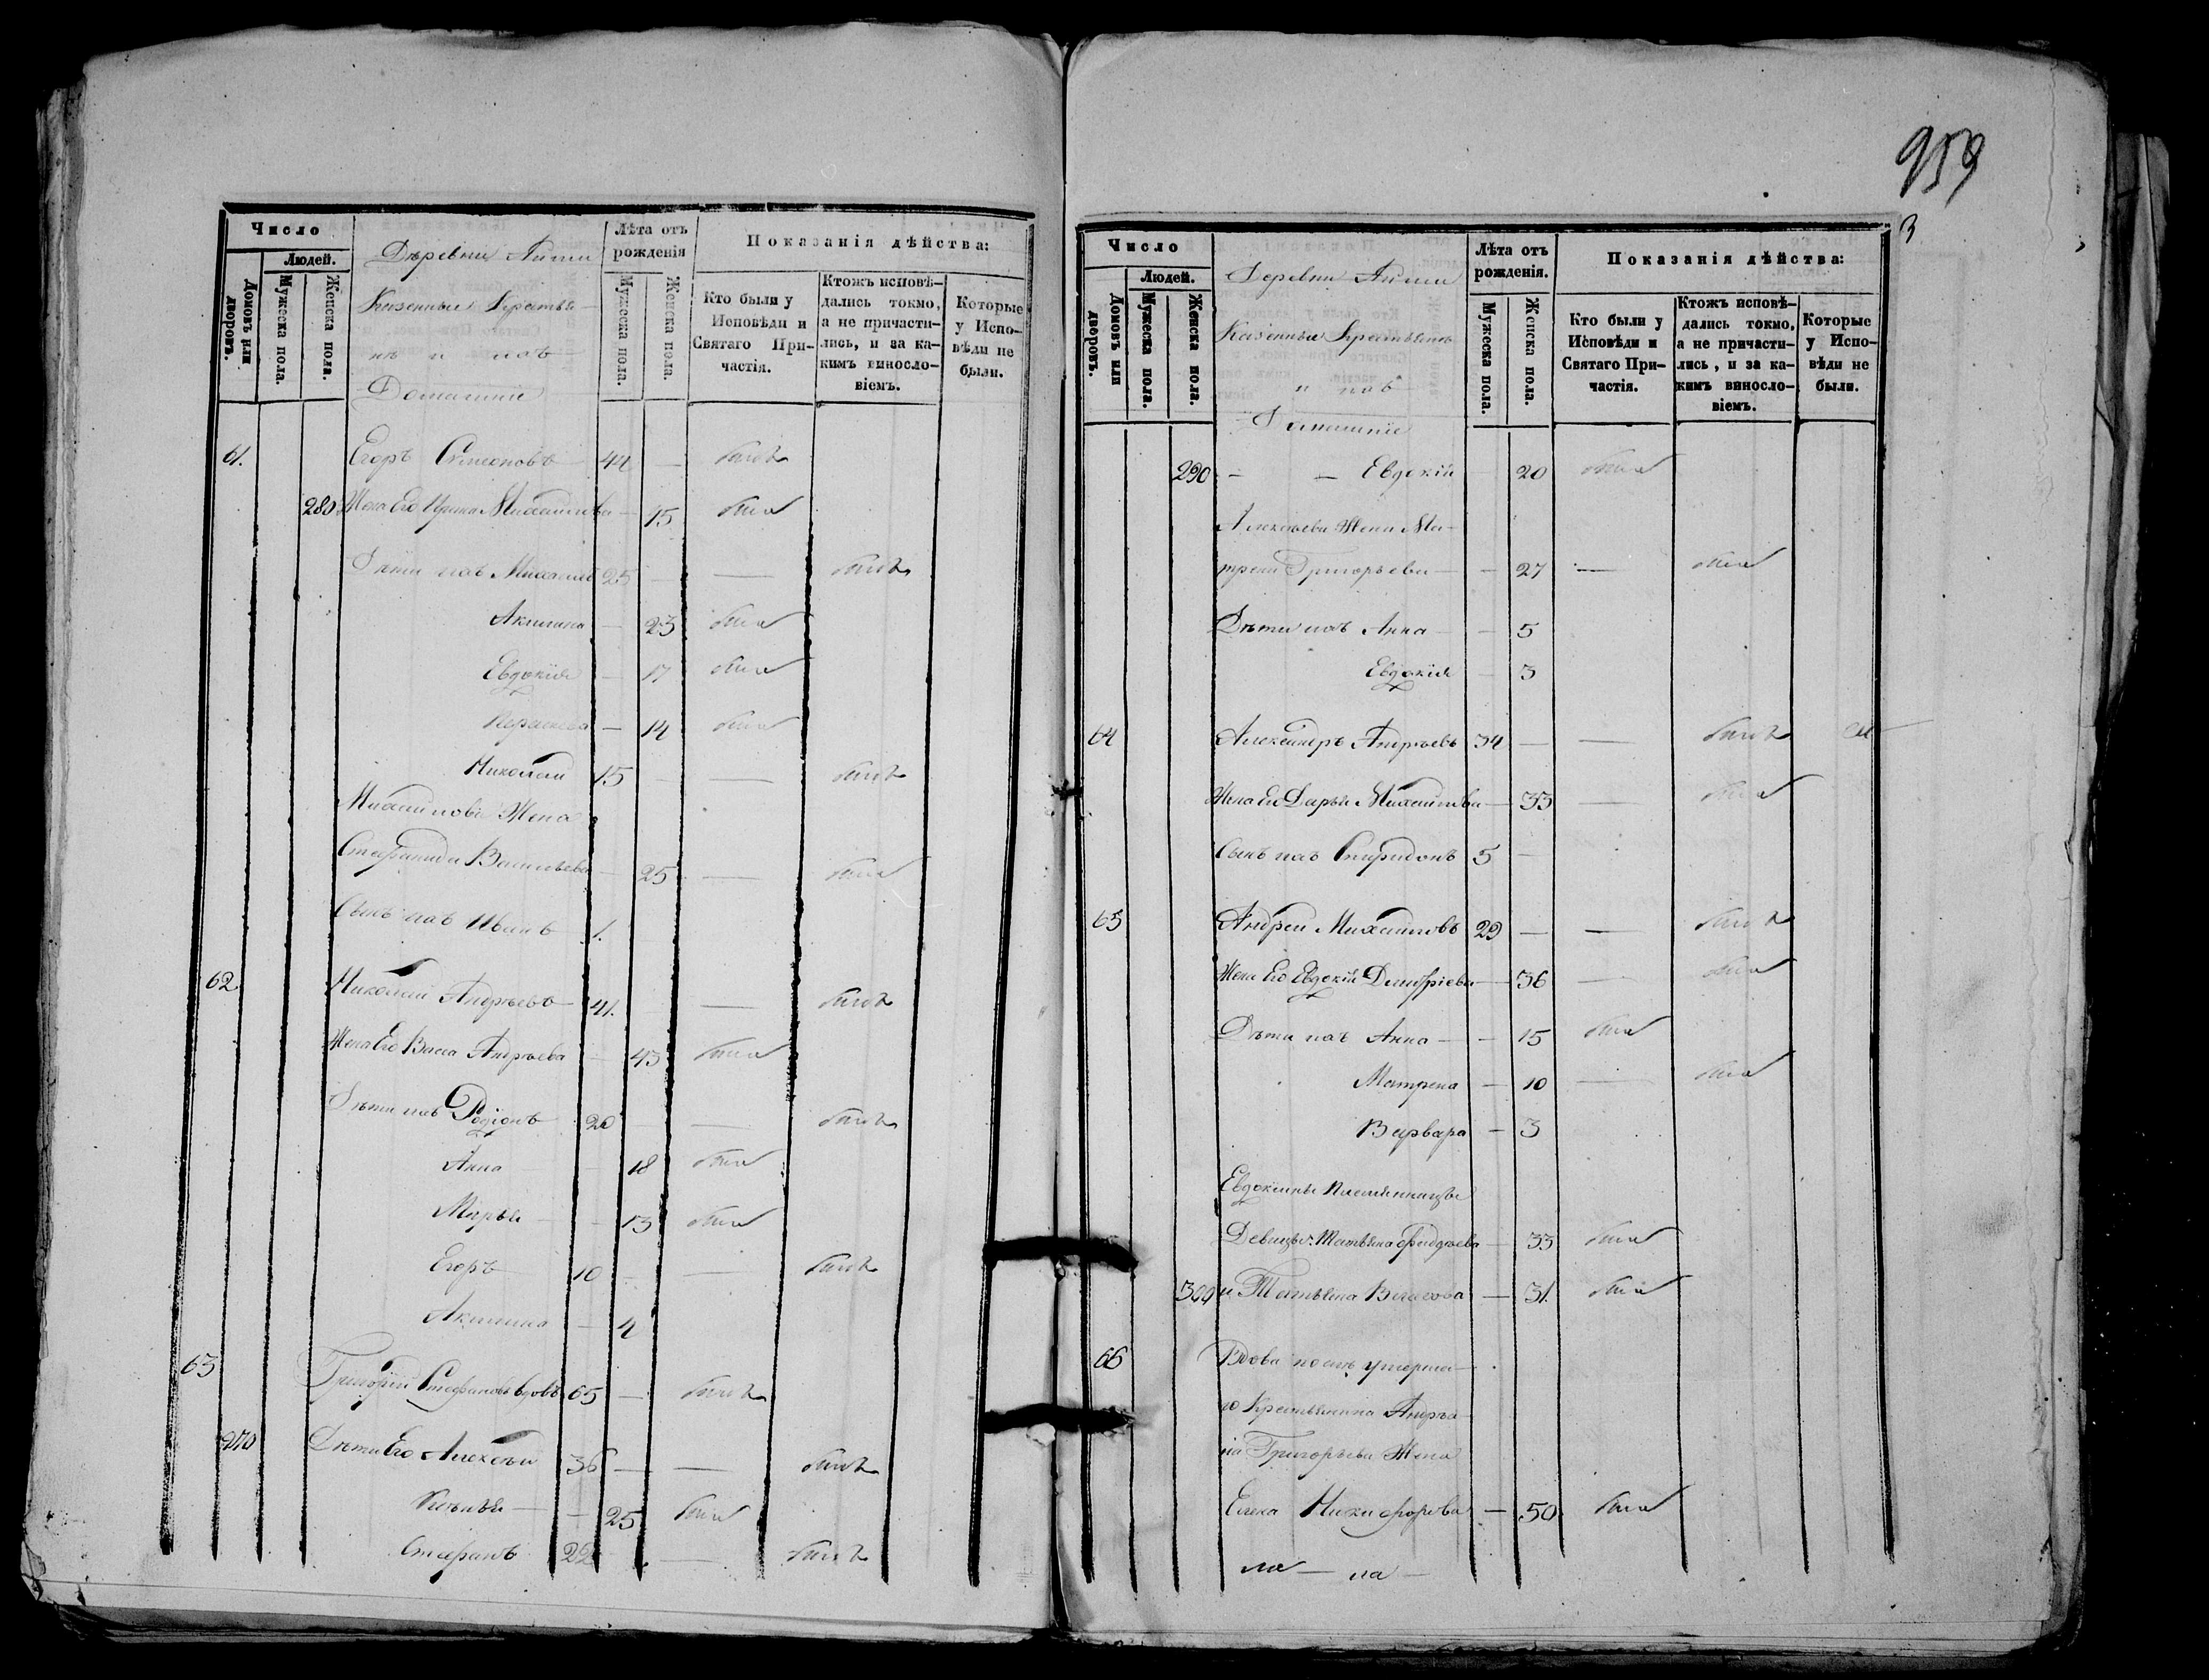 959
3
Число
Людей.
Домовъ или дворовъ.
Мужеска пола.
Женска пола.
Деревни
Казенныи Крестья-
не и ихъ
Домашніе
Лѣта отъ
рожденія
Мужеска пола.
Женска пола.
Показанія дѣйства:
Кто были у
Исповѣди и
Святаго При-
частія.
Ктожъ исповѣ-
дались токмо,
а не причасти-
лись, и за ка-
кимъ виносло-
віемъ.
Которые
у Испо-
вѣди не
были.
61. Егоръ Симеоновъ 44 — былъ
280 Жена Его Ирина Михайлова — 45 была
Дѣти ихъ Михаилъ 25 — былъ
Акилина — 23 была
Евдокія — 17 была
— 14 была
Николай 15 — — былъ
Михайлова Жена
Стефанида Васильева — 25 — была
Сынъ ихъ Иванъ 1.
62 Николай Андреевъ 41. — былъ
Жена Его Васса Андреева — 43 была
Дѣти ихъ Родіонъ 20 — — былъ
Анна — 18 была
Марья — 13 была
Егоръ 10 — — былъ
Акилина — 4
63 Григорій Стефановъ вдовъ 65 — былъ
270 Дѣти Его Алексѣй 36 — — былъ
— 25 была
Стефанъ 22 — былъ
Число
Людей.
Домовъ или дворовъ.
Мужеска пола.
Женска пола.
Деревни
Казенныи Крестьяне
и ихъ
Домашніе
Лѣта отъ
рожденія.
Мужеска пола.
Женска пола.
Показанія дѣйства:
Кто были у
Исповѣди и
Святаго При-
частія.
Ктожъ исповѣ-
дались токмо,
а не причасти-
лись, и за ка-
кимъ виносло-
віемъ.
Которые
у Испо-
вѣди не
были.
290 — — Евдокія — 20 была
Алексѣева Жена Ма-
трена Григорьева — — 27 — была
Дѣти ихъ Анна — — 5
Евдокія — 3
64 Александръ Андреевъ 34 — — былъ
Жена Его Дарья Михайлова — 33 — была
Сынъ ихъ Спиридонъ 5 —
65 Андрей Михайловъ 29 — — былъ
Жена Его Евдокія Димитріева — 36 — была
Дѣти ихъ Анна — — 15 была
Матрена — 10 — была
Варвара — 3
Евдокіины племянницы
Девицы: Татьяна — 33 была
300 и Татьяна Власова — 31. была
66 Вдова послѣ умерша-
го Крестьянина Андрея
Григорьева Жена
Елена Никифорова — 50 была